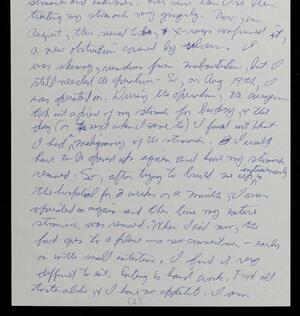 stomach and intestines. Ever since then I've been
treating my stomach very gingerly. Now, in
August, this recurred & X-rays confirmed it,
a new obstruction caused by ulcers. I
was skinny, rundown from malnutrition, but I
still needed the operation. So, on Aug 19th, I
was operated on. During the operation, the surgeon
took out a piece of my stomach for biopsy, & the
day I I found out that
I had a malignancy of the stomach. I would
have to be opened up again and have my stomach
removed. So, after trying to build me up intravenously
the hospital for 2 weeks or a month, I was
operated on again and this time my entire
stomach was removed. When I eat now, the
food goes to a place – a new connection – early
on in the small intestine. I find it very
difficult to eat. Eating is hard work. Food all
tastes alike, & I have no appetite. I am
(2)